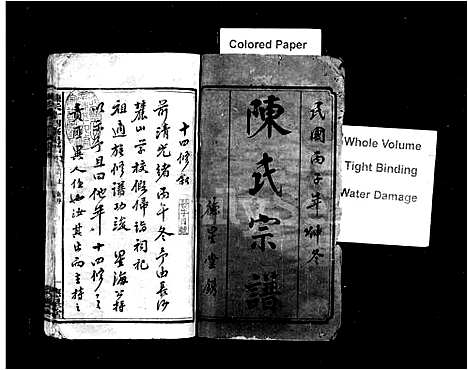 Colored Paper
Whole Volume
Tight Binding
Water Damage
民國丙子年仲冬
陳氏宗譜
德星堂鐫
十四修叙
前清光緒丙午冬予由長沙
麓山學校假歸詣祠祀
祖適族修譜功竣星海公持
以示予且曰他年十四修之
責匪異人任也汝其出而主持之